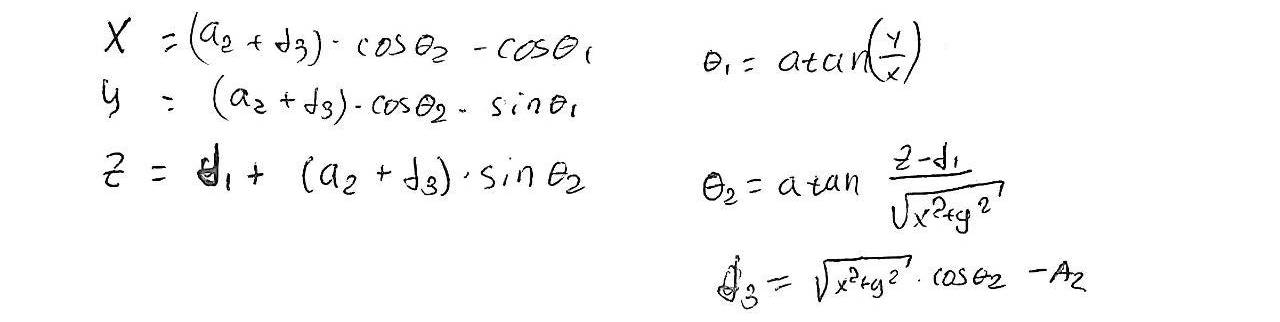 X = (a₂ + d₃) · cosθ₂ - cosθ₁
y = (a₂ + d₃) - cosθ₂ - sinθ₁
Z = d₁ + (a₂ + d₃) · sin θ₂
θ₁ = atan(y/x)
θ₂ = atan (z-d₁)/√(x²+y²)
d₃ = √(x²+y²) · cosθ₂ - A₂